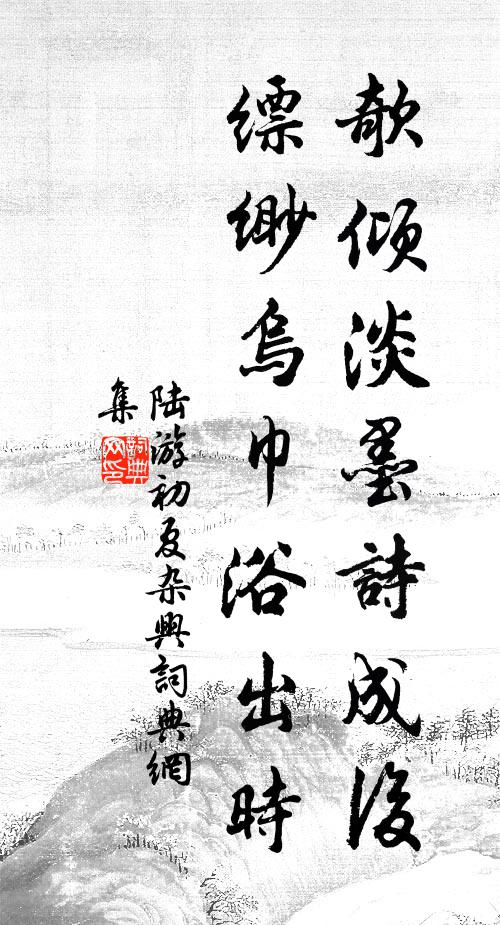 欹傾淡墨詩成後
縹緲烏巾浴出時
陆游初夏杂興詞典網
集
詞典网印